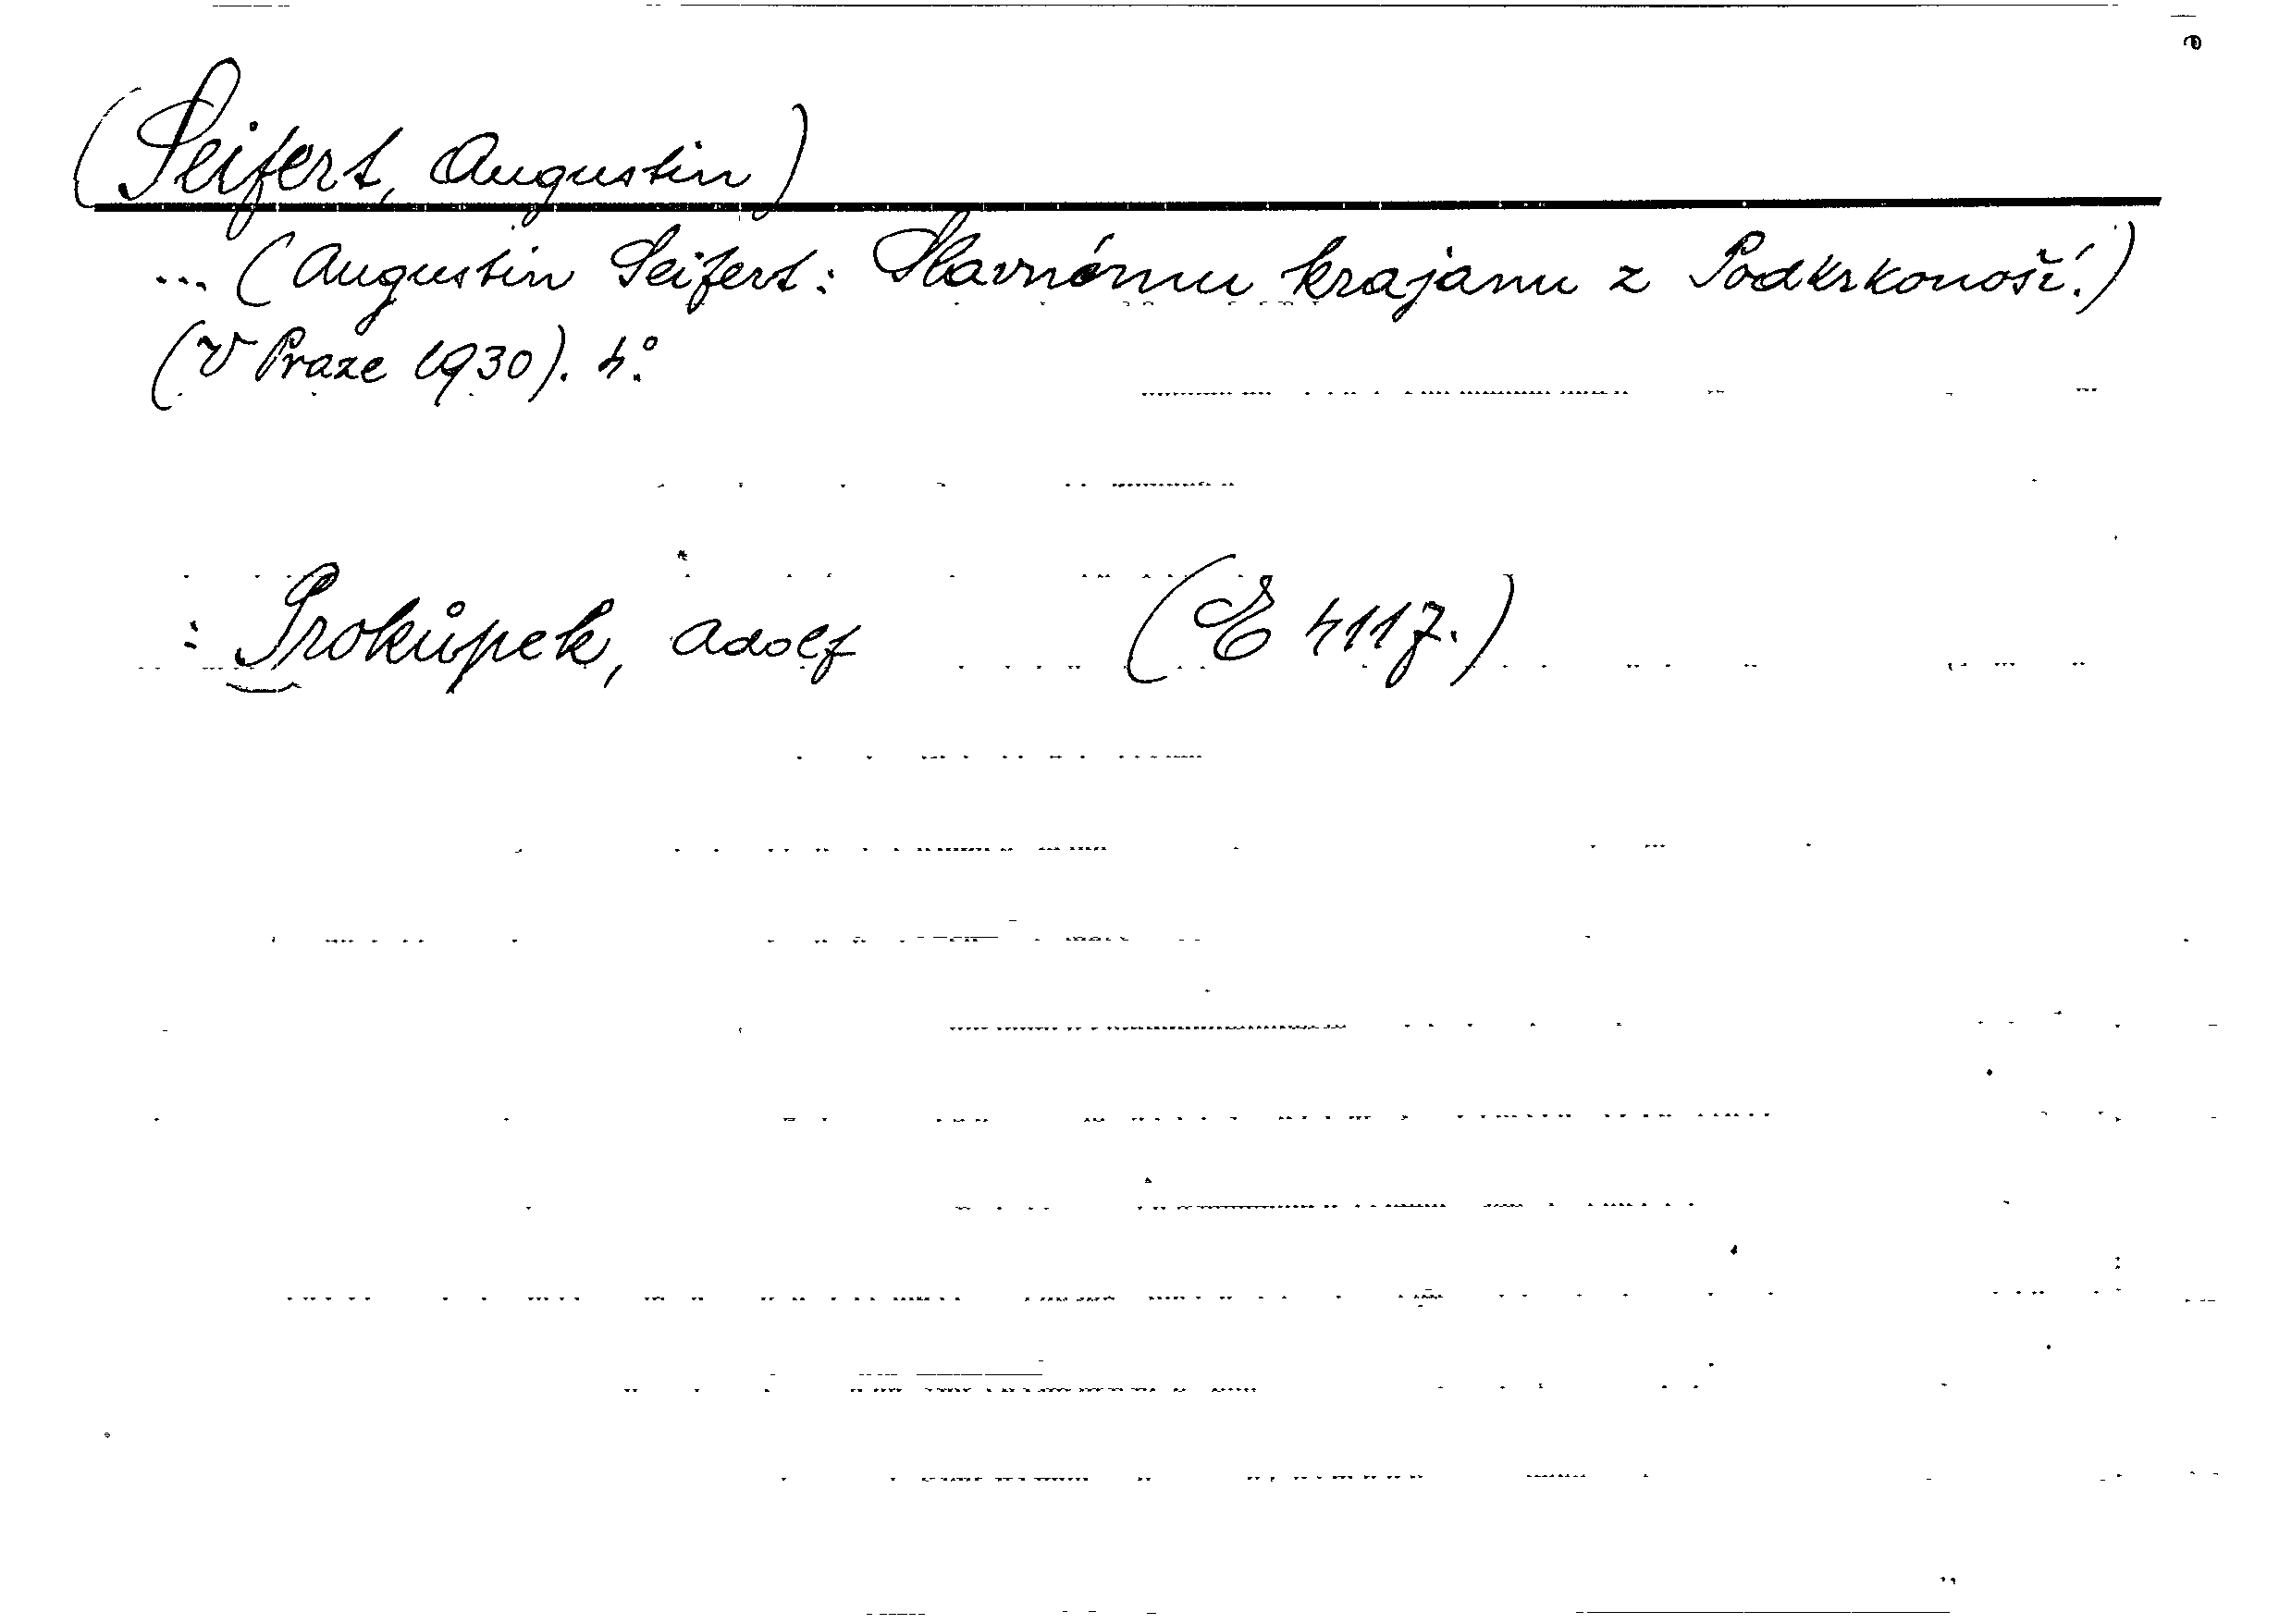 (Seifert, Augustin)
... (Augustin Seifert: Slavnému krajanu z Podkrkonoší.)
(V Praze 1930). 4°.
: Prokůpek, Adolf (E 4117.)